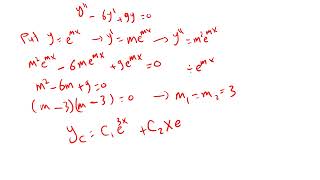 y'' - 6y' + 9y = 0
Put y = e^{mx} → y' = me^{mx} → y'' = m²e^{mx}
m²e^{mx} - 6me^{mx} + 9e^{mx} = 0 ÷e^{mx}
m² - 6m + 9 = 0
(m - 3)(m - 3) = 0 → m₁ = m₂ = 3
y_c = C₁e^{3x} + C₂xe